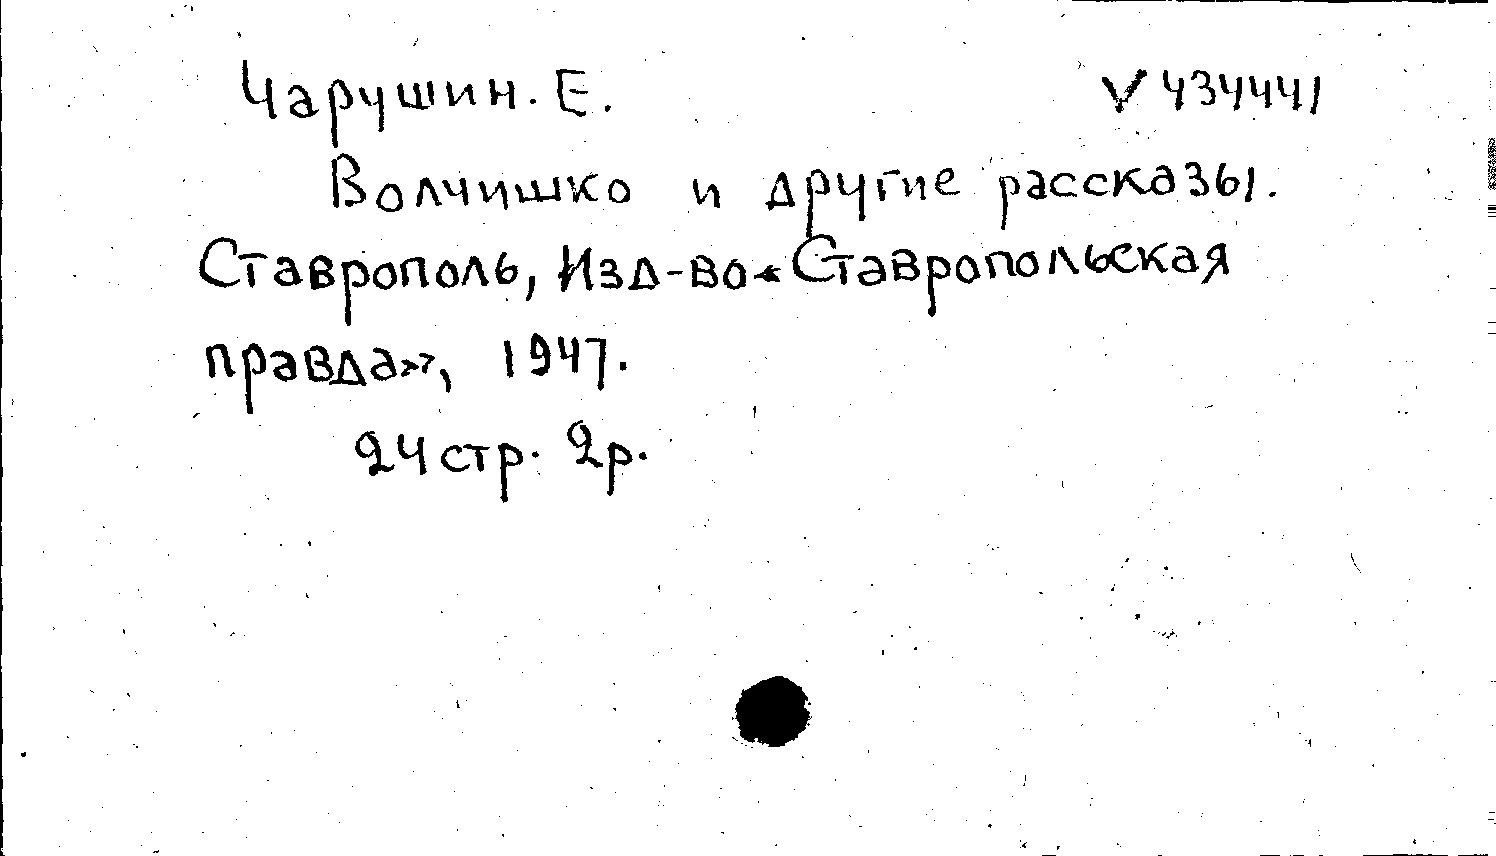 Чарушин. Е. V 434441
Волчишко и другие рассказы.
Ставрополь, Изд-во «Ставропольская
правда», 1947.
24 стр. 2 р.